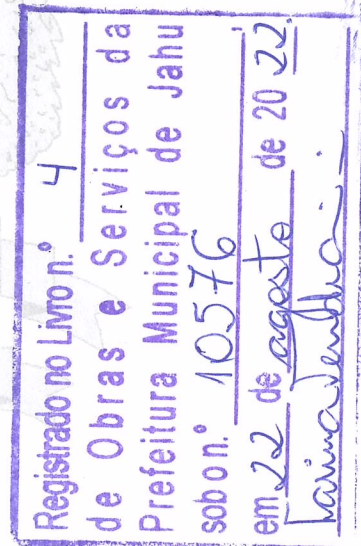 Registrado no Livro n.º 4
de Obras e Serviços da
Prefeitura Municipal de Jahu
sob o n.º 10576
em 22 de agosto de 20 22